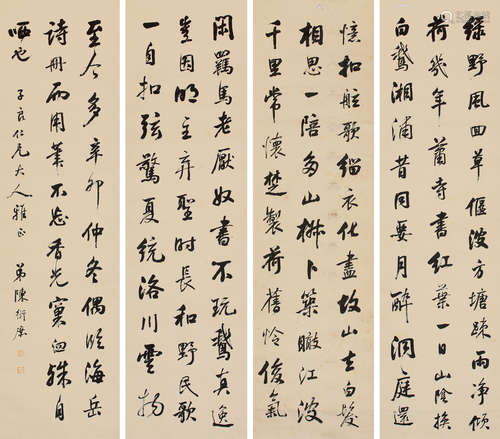 綠野風回草偃波方塘疎雨淨傾
荷幾年蕭寺書紅葉一日山陰換
白鵞湘浦昔同要月醉洞庭還
憶扣舷歌緇衣化盡故山去白髮
相思一陪多山椒卜築瞰江波
千里常懷楚製荷舊怜俊氣
閑羈馬老厭奴書不玩鵞真逸
豈因明主弃聖時長和野民歌
一自扣弦驚夏統洛川雲物
至今多辛卯仲冬偶臨海岳
詩冊而用筆不忘香光窠臼殊自
哂也 子良仁兄大人雅正 弟陳衍庶